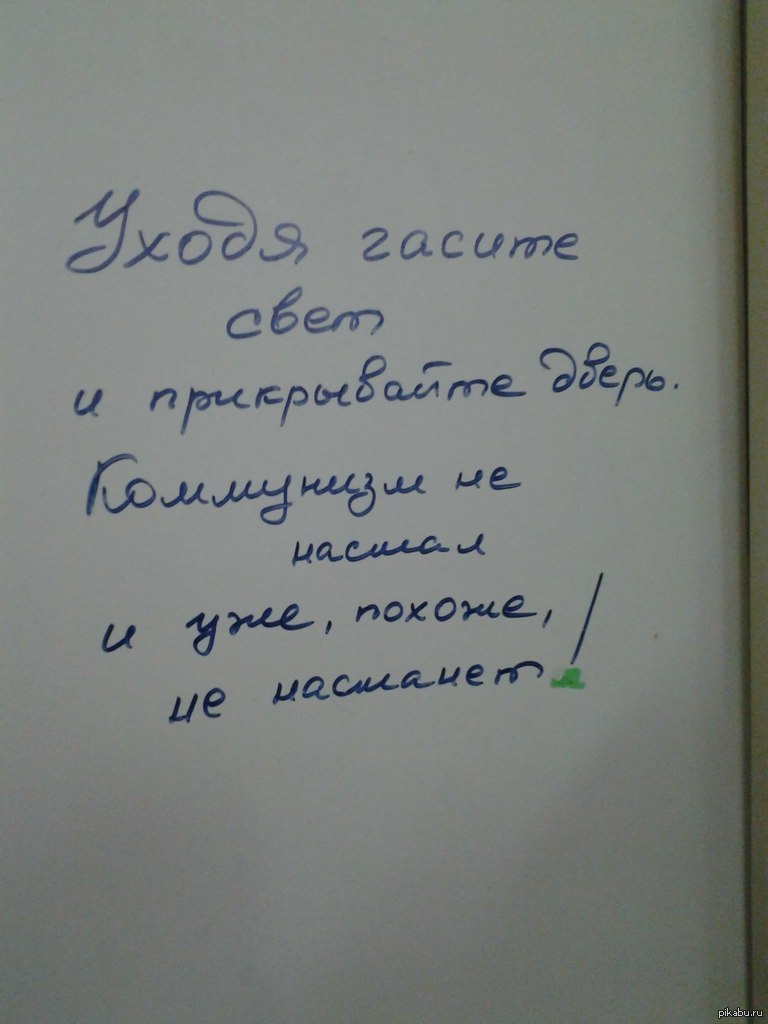 Уходя гасите
свет
и прикрывайте дверь.
Коммунизм не
настал
и уже, похоже,
не настанет!
pikabu.ru